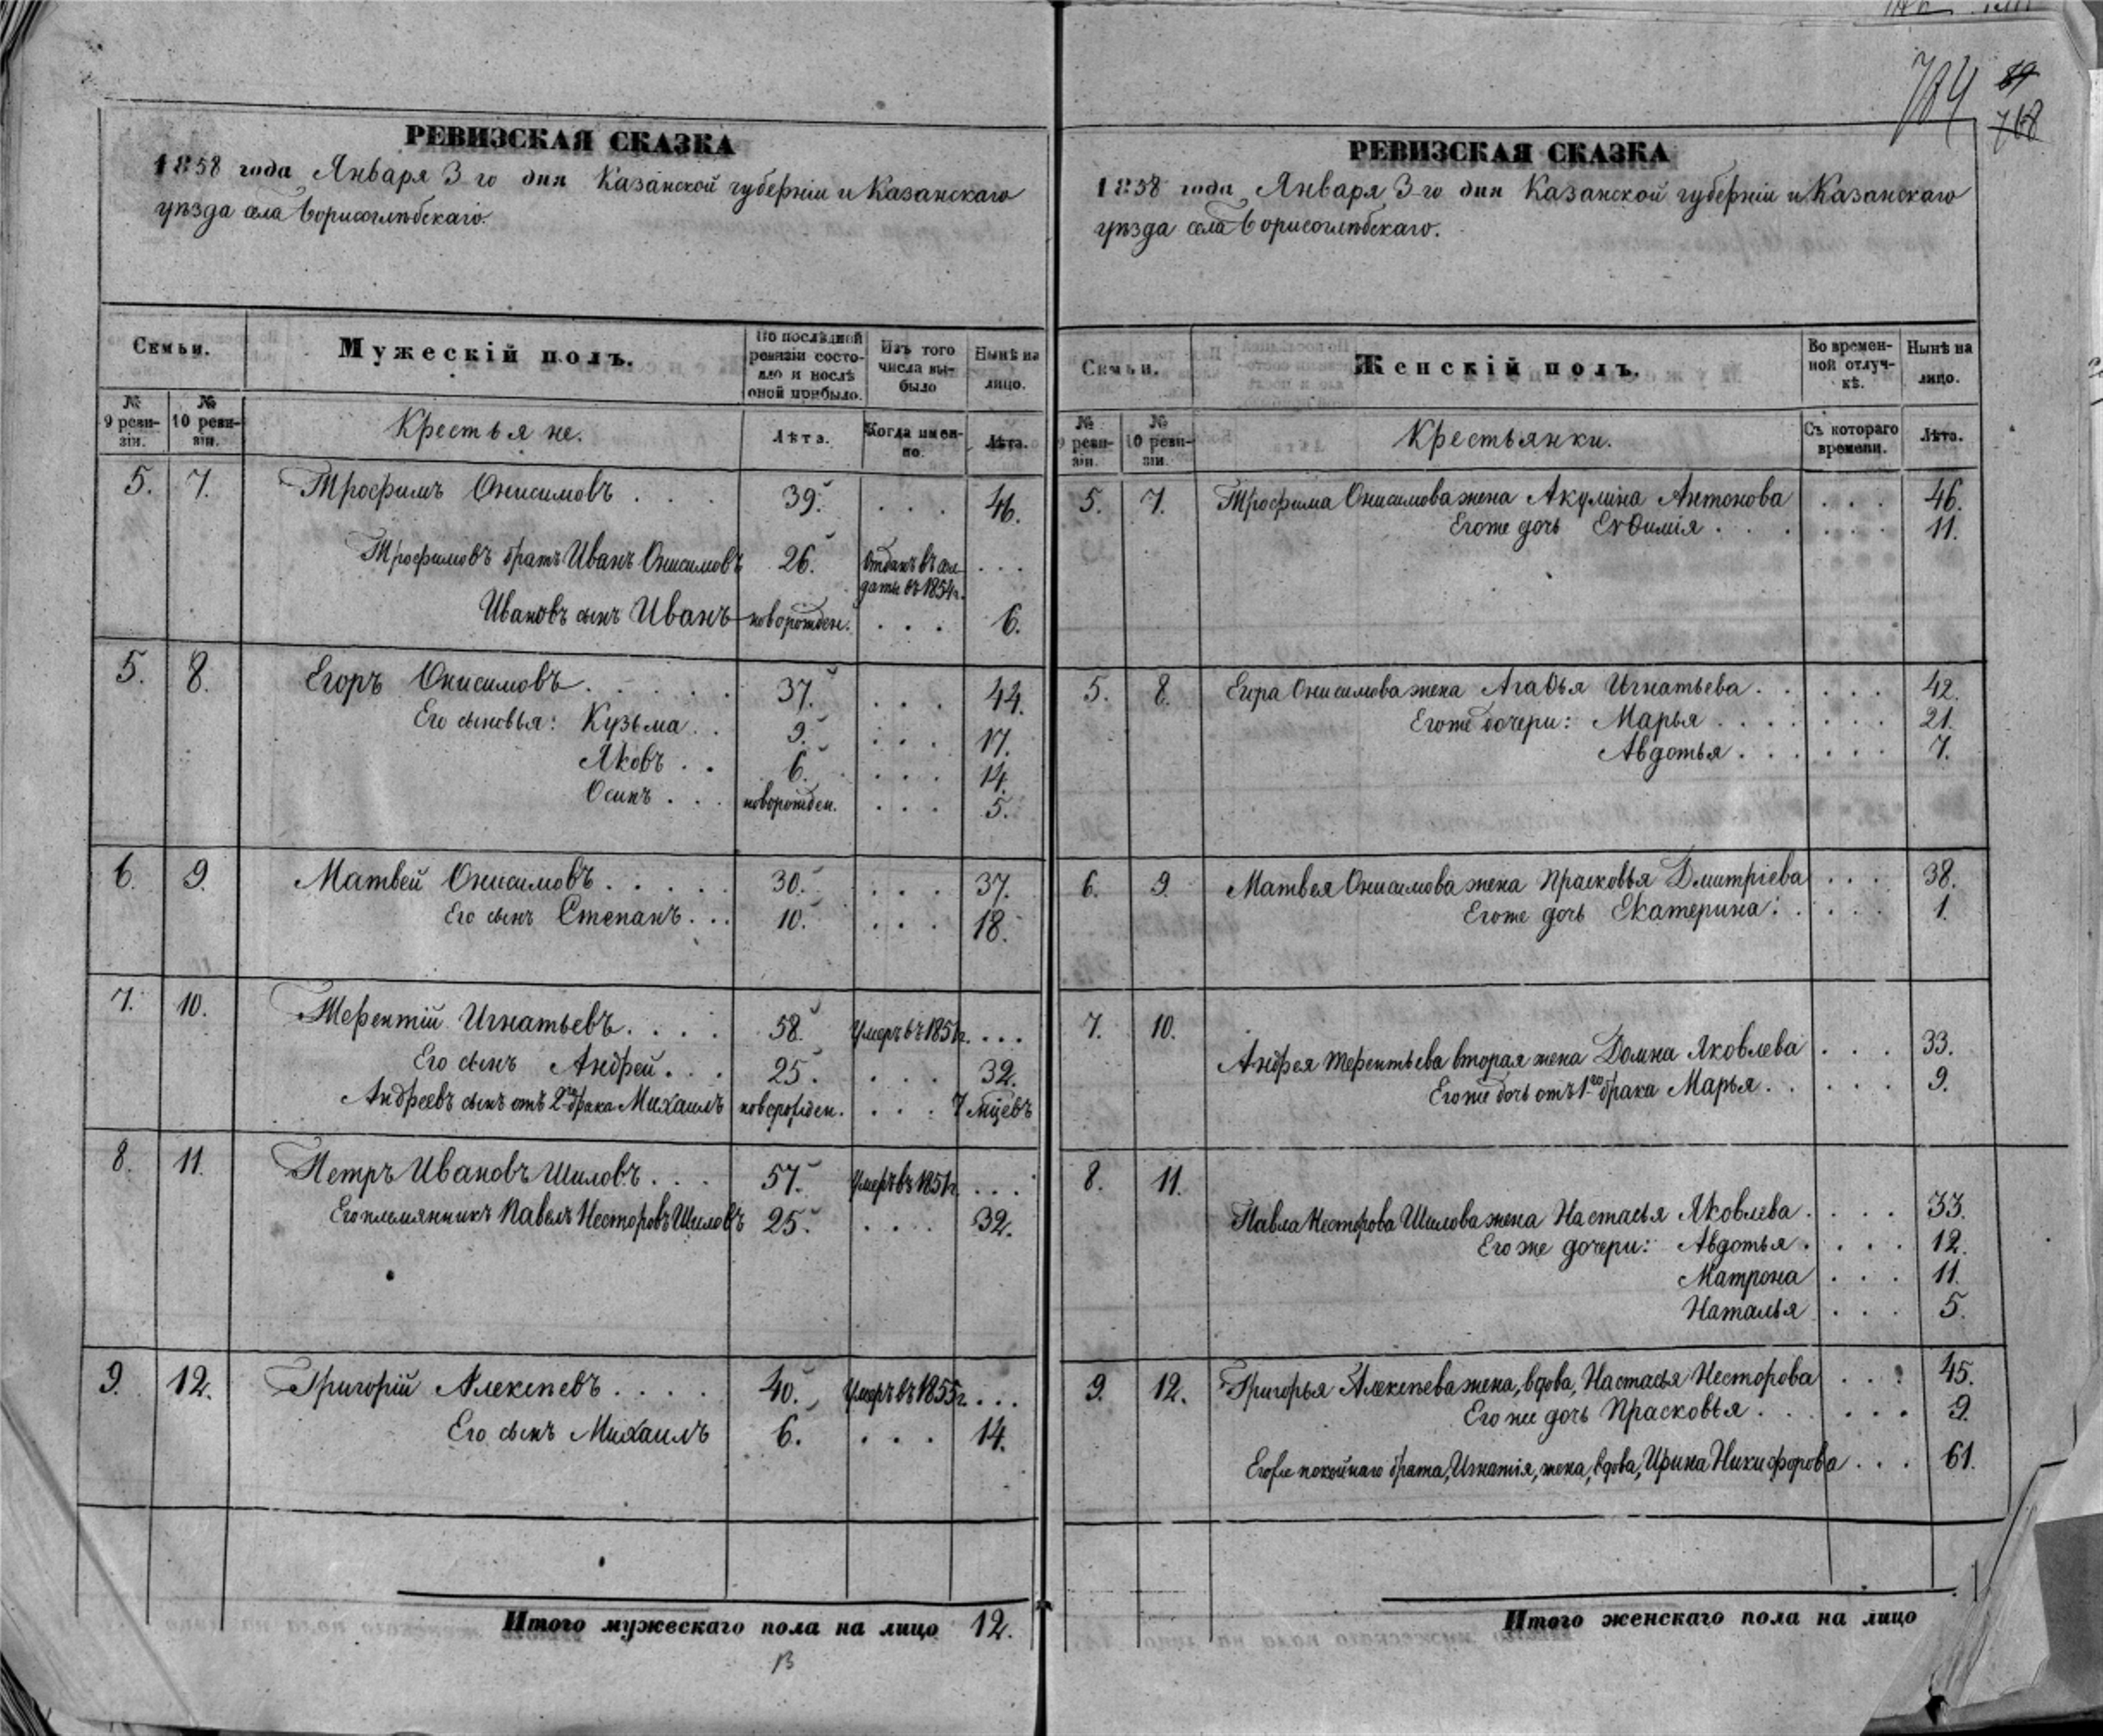 784 89
768
РЕВИЗСКАЯ СКАЗКА
1858 года Января 3го дня Казанской губерніи и Казанскаго
уѣзда села Борисоглѣбскаго.
Семьи.
Мужескій полъ.
По послѣдней ревизіи состояло и послѣ оной прибыло.
Изъ того числа выбыло
Нынѣ на лицо.
№ 9 ревизіи.
№ 10 ревизіи.
Крестьяне.
Лѣта.
Когда именно.
Лѣта.
5. 7. Трофимъ Онисимовъ . . . 39. . . . 46.
Трофимовъ братъ Иванъ Онисимовъ 26. Отданъ въ солдаты въ 1854г. . . .
Ивановъ сынъ Иванъ новорожден. . . . 6.
5. 8. Егоръ Онисимовъ . . . . . 37. . . . 44.
Его сыновья: Кузьма . . 9. . . . 17.
Яковъ . . 6. . . . 14.
Осипъ . . . новорожден. . . . 5.
6. 9. Матвей Онисимовъ . . . . . 30. . . . 37.
Его сынъ Степанъ . . . 10. . . . 18.
7. 10. Терентій Игнатьевъ . . . . 58. Умеръ въ 1851г. . . .
Его сынъ Андрей . . . 25. . . . 32.
Андреевъ сынъ отъ 2го брака Михаилъ новорожден. . . . 7 мцевъ
8. 11. Петръ Ивановъ Шиловъ . . . 57. Умеръ въ 1851г. . . .
Его племянникъ Павелъ Несторовъ Шиловъ 25. . . . 32.
9. 12. Григорій Алексѣевъ . . . . 40. Умеръ въ 1855г. . . .
Его сынъ Михаилъ 6. . . . 14.
Итого мужескаго пола на лицо 12.
РЕВИЗСКАЯ СКАЗКА
1858 года Января 3го дня Казанской губерніи и Казанскаго
уѣзда села Борисоглѣбскаго.
Семьи.
Женскій полъ.
Во временной отлучкѣ.
Нынѣ на лицо.
№ 9 ревизіи.
№ 10 ревизіи.
Крестьянки.
Съ котораго времени.
Лѣта.
5. 7. Трофима Онисимова жена Акулина Антонова . . . 46.
Его же дочь Евѳимія . . . . . . 11.
5. 8. Егора Онисимова жена Агаѳья Игнатьева . . . . . 42.
Его же дочери: Марья . . . . . . . 21.
Авдотья . . . . . . 7.
6. 9. Матвея Онисимова жена Прасковья Дмитріева . . . 38.
Его же дочь Екатерина . . . . . 1.
7. 10.
Андрея Терентьева вторая жена Домна Яковлева . . . 33.
Его же дочь отъ 1го брака Марья . . . . . 9.
8. 11.
Павла Несторова Шилова жена Настасья Яковлева . . . . 33.
Его же дочери: Авдотья . . . . 12.
Матрона . . . 11.
Наталья . . . 5.
9. 12. Григорья Алексѣева жена, вдова, Настасья Несторова . . . 45.
Его же дочь Прасковья . . . . . . 9.
Его же покойнаго брата, Игнатія, жена, вдова, Ирина Никифорова . . . 61.
Итого женскаго пола на лицо